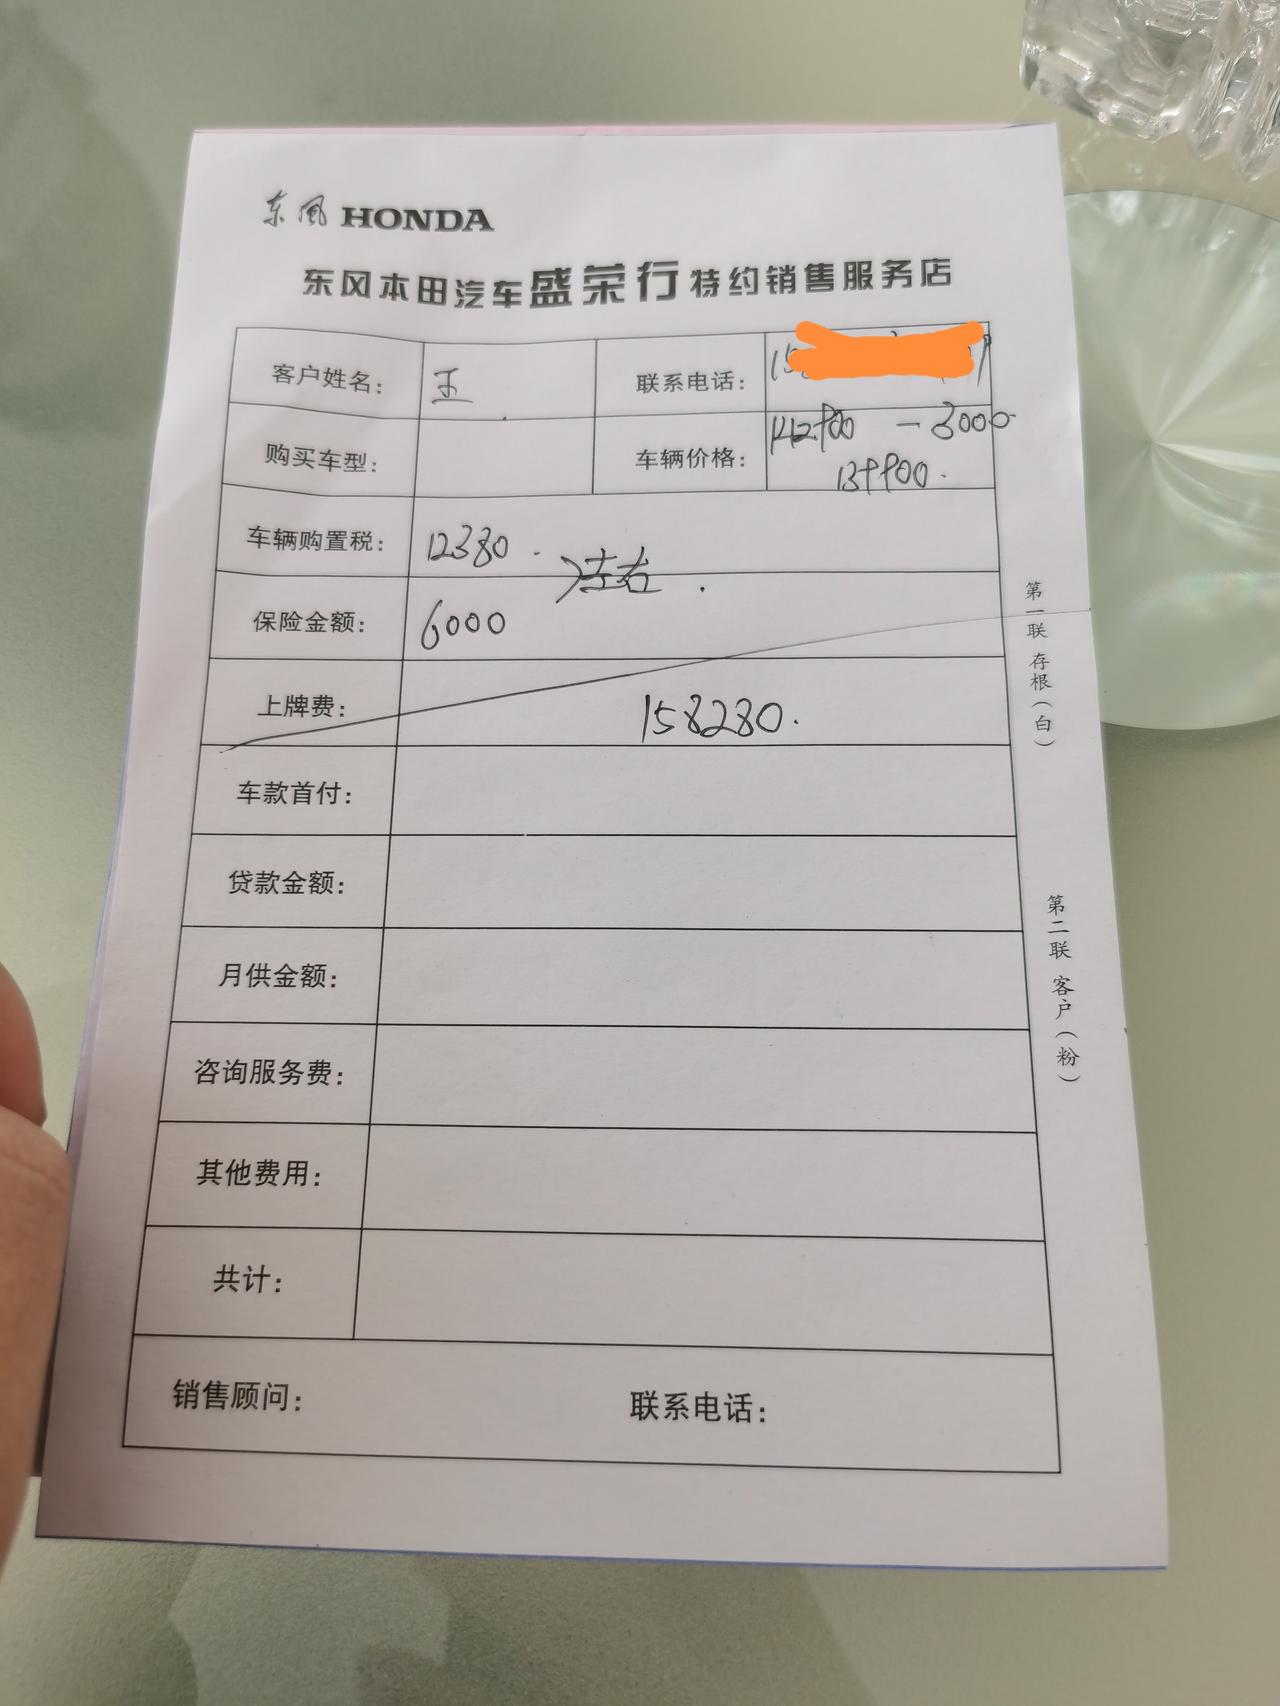 东风 HONDA
东风本田汽车盛荣行特约销售服务店
客户姓名: 王 联系电话:
购买车型: 车辆价格: 142900 - 3000
139900.
车辆购置税: 12380.
}左右.
保险金额: 6000
上牌费: 158280.
车款首付:
贷款金额:
月供金额:
咨询服务费:
其他费用:
共计:
销售顾问: 联系电话:
第一联 存根(白)
第二联 客户(粉)